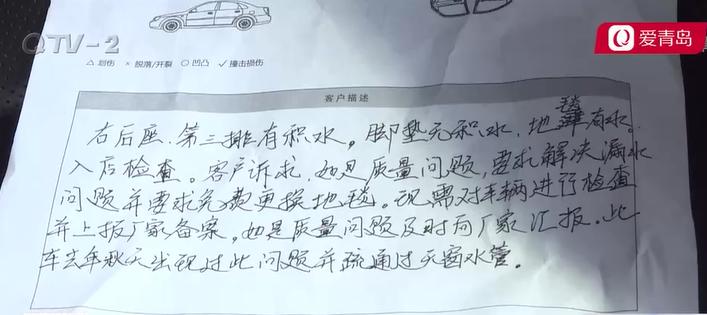 QTV-2
爱青岛
△ 划伤 × 脱落/开裂 ○ 凹凸 ✓ 撞击损伤
客户描述
右后座、第三排有积水。脚垫无积水,地毯有水。
入店检查。客户诉求,如是质量问题,要求解决漏水
问题并要求免费更换地毯。现需对车辆进行检查
并上报厂家备案,如是质量问题及时向厂家汇报。此
车去年秋天出现过此问题并疏通过天窗水管。